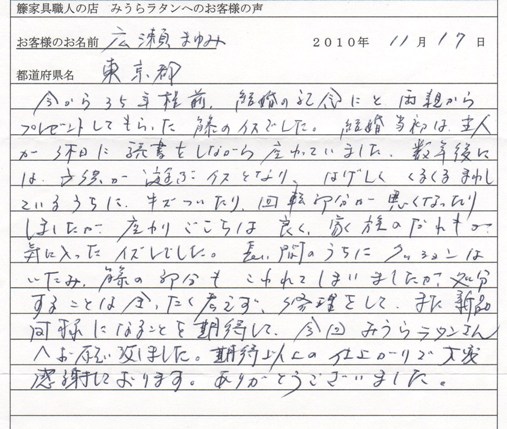 籐家具職人の店 みうらラタンへのお客様の声
お客様のお名前 広瀬まゆみ 2010年 11月 17日
都道府県名 東京都
今から35年程前、結婚の記念にと両親から
プレゼントしてもらった籐のイスでした。結婚当初は、主人
が休日に読書をしながら座っていました。数年後に
は、子供が遊ぶイスとなり、はげしくくるくるまわし
ているうちに、キズついたり、回転部分が悪くなったり
しましたが、座りごこちは良く、家族のだれもが
気に入ったイスでした。長い間のうちにクッションは
いたみ、籐の部分もこわれてしまいましたが、処分
することは全く考えず、修理をして、また新品
同様になることを期待して、今回みうらラタンさん
へお願い致しました。期待以上の仕上がりで大変
感謝しております。ありがとうございました。